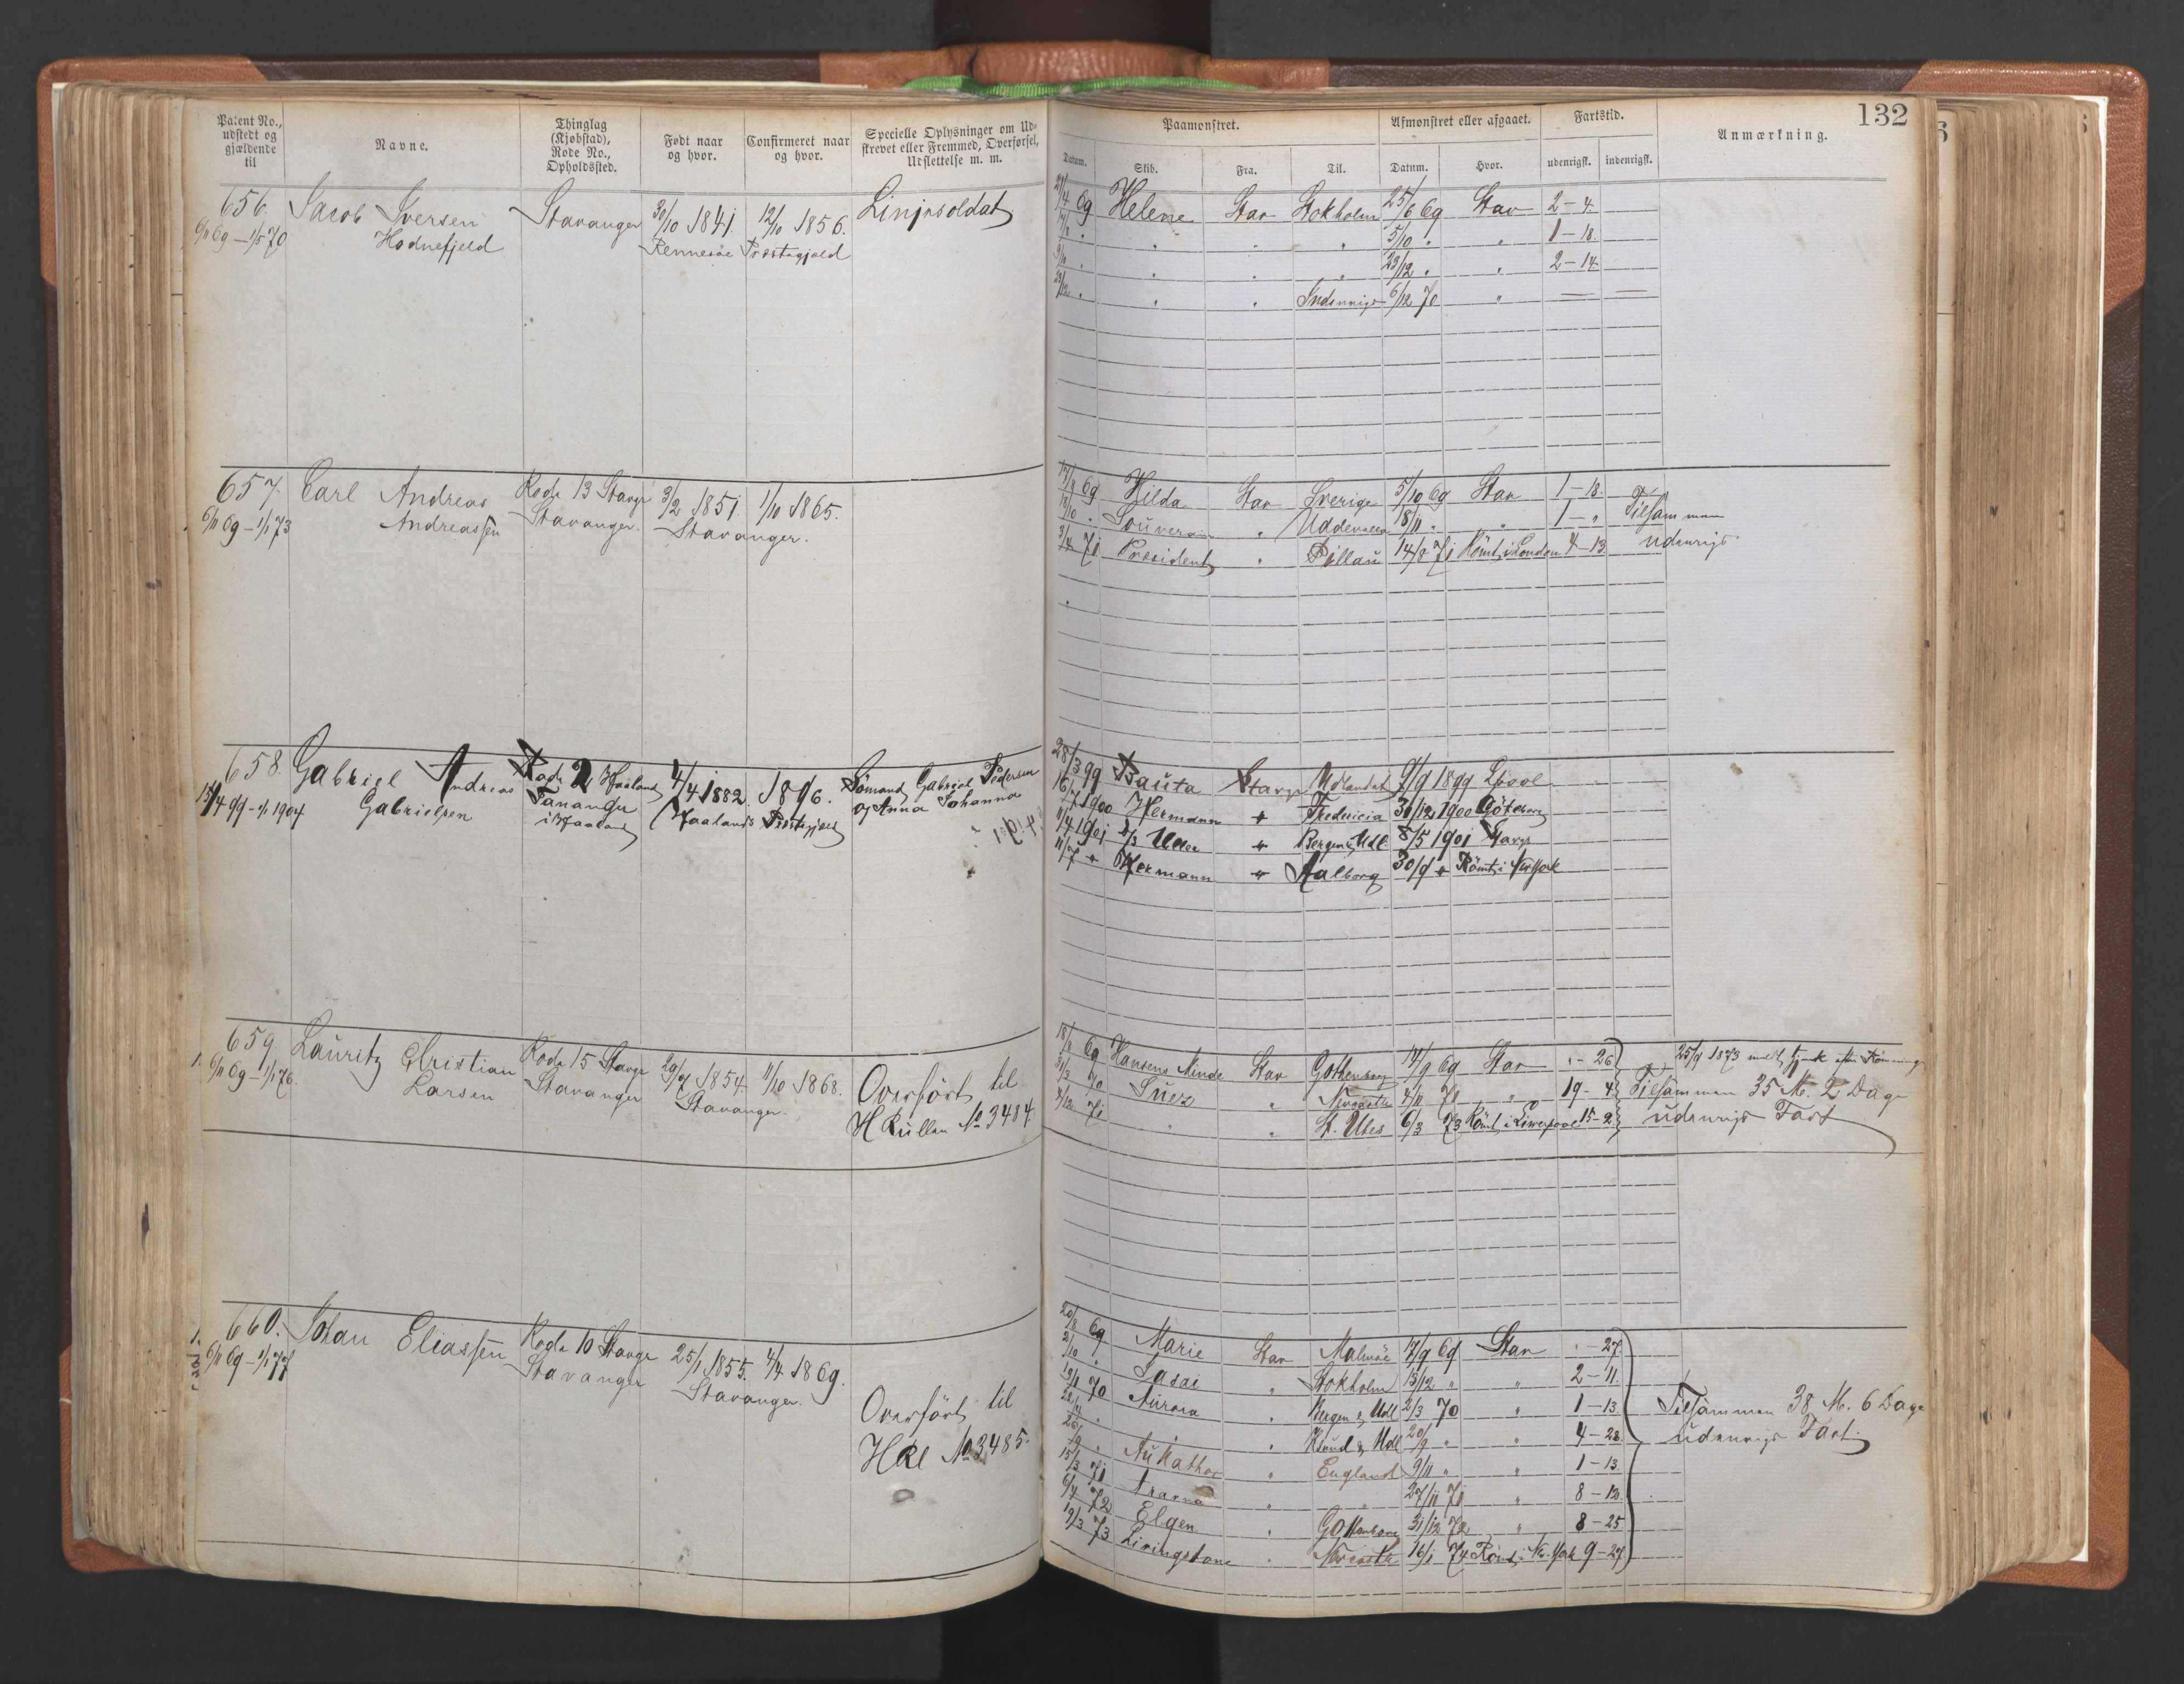 132
Patent No., udstedt og gjældende til
Navne.
Thinglag (Kjøbstad), Rode No., Opholdssted.
Født naar og hvor.
Confirmeret naar og hvor.
Specielle Oplysninger om Udskrevet eller Fremmed, Overførsel, Udslettelse m. m.
Paamønstret.
Datum.
Skib.
Fra.
Til.
Afmønstret eller afgaaet.
Datum.
Hvor.
Fartstid.
udenrigsk.
indenrigsk.
Anmærkning.
656. Jacob Iversen Stavanger 30/10 1841. 12/10 1856. Linjesoldat
6/11 69 – 1/5 70 Hodnefjeld Rennesøe Præstegjæld
Helene Stav Stokholm 25/6 69 Stav 2 – 4.
" " " 5/10 " " 1 – 18.
" " " 23/12 " " 2 – 14.
" " Indenrigs 6/12 70 " — —
657. Carl Andreas Rode 13 Stavgr 3/2 1851. 1/10 1865.
6/11 69 – 1/1 73 Andreassen Stavanger. Stavanger.
17/8 69 Hilda Stav Sverige 5/10 69 Stav 1 – 18. Tilsammen
Souverain " Uddevalla 18/11 " " 1 – " udenrigs
3/4 71 President " Pillau 14/8 71 Römt i London 4 – 13
658. Gabriel Andreas Rode 2 Haaland 4/4 1882. 1896. Sömand Gabriel Pedersen
15/4 99 – 1/1 1904 Gabrielsen Tananger Haalands Prestegjeld og Anna Johanna
i Haaland
28/3 99 Bauta Stavgr Udlandet 9/9 1899 Lpool
16/7 1900 Hermann " Fredericia 30/12 1900 Göteborg
11/4 1901 Uller " Bergen & Udl. 8/5 1901 Stavgr
11/7 " Hermann " Aalborg 30/9 " Römt i NewYork
659. Lauritz Christian Rode 15 Stavgr 29/7 1854. 11/10 1868. Overfört til
1. 6/11 69 – 1/1 76. Larsen Stavanger Stavanger. H Rullen No 3484.
18/8 69 Hansens Minde Stav Gothenborg 14/9 69 Stav " – 26 25/9 1873 meldt hjemk efter Römning
70 Suez " Newcastle 4/11 71 " 19 – 4 Tilsammen 35 M. 2 Dage
4/12 71 " " St. Ubes 6/3 73 Römt i Liverpool 15 – 2. udenrigs Fart
660. Johan Eliassen Rode 10 Stavgr 25/1 1855. 4/4 1869. Overfört til
1. 6/11 69 – 1/1 77 Stavanger Stavanger. H Rl No 3485.
20/8 69 Marie Stav Malmöe 17/9 69 Stav " – 27.
2/10 " " Stokholm 13/12 " " 2 – 11.
70 Aurora " Bergen & Udl 2/3 70 " 1 – 13. Tilsammen 38 M. 6 Dage
" " Ksund & Udl 20/9 " " 4 – 28. udenrigs Fart.
" " England 9/11 " " 1 – 13.
15/3 71 " " 27/11 71 " 8 – 12.
6/4 72 Elgen " Gothenborg 31/12 72 " 8 – 25
19/3 73 Livingstone " Newcastle 16/1 74 Römt i New York 9 – 27